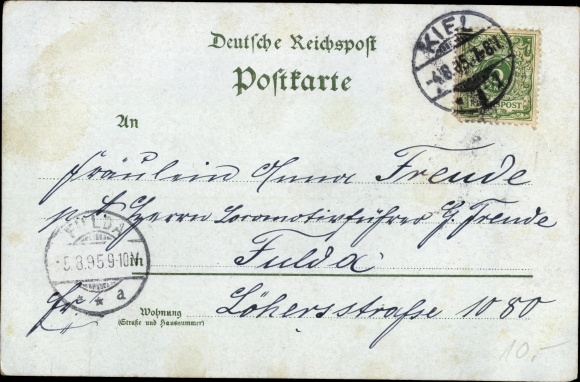 Deutsche Reichspost
Postkarte
KIEL
4.8.95.7-8N
REICHSPOST
An
Fräulein Anna Freude
Herrn Locomotivführer G. Freude
FULDA
5.8.95.9-10N
a
Fulda
Wohnung
(Straße und Hausnummer)
Löhersstraße 1080
10.-